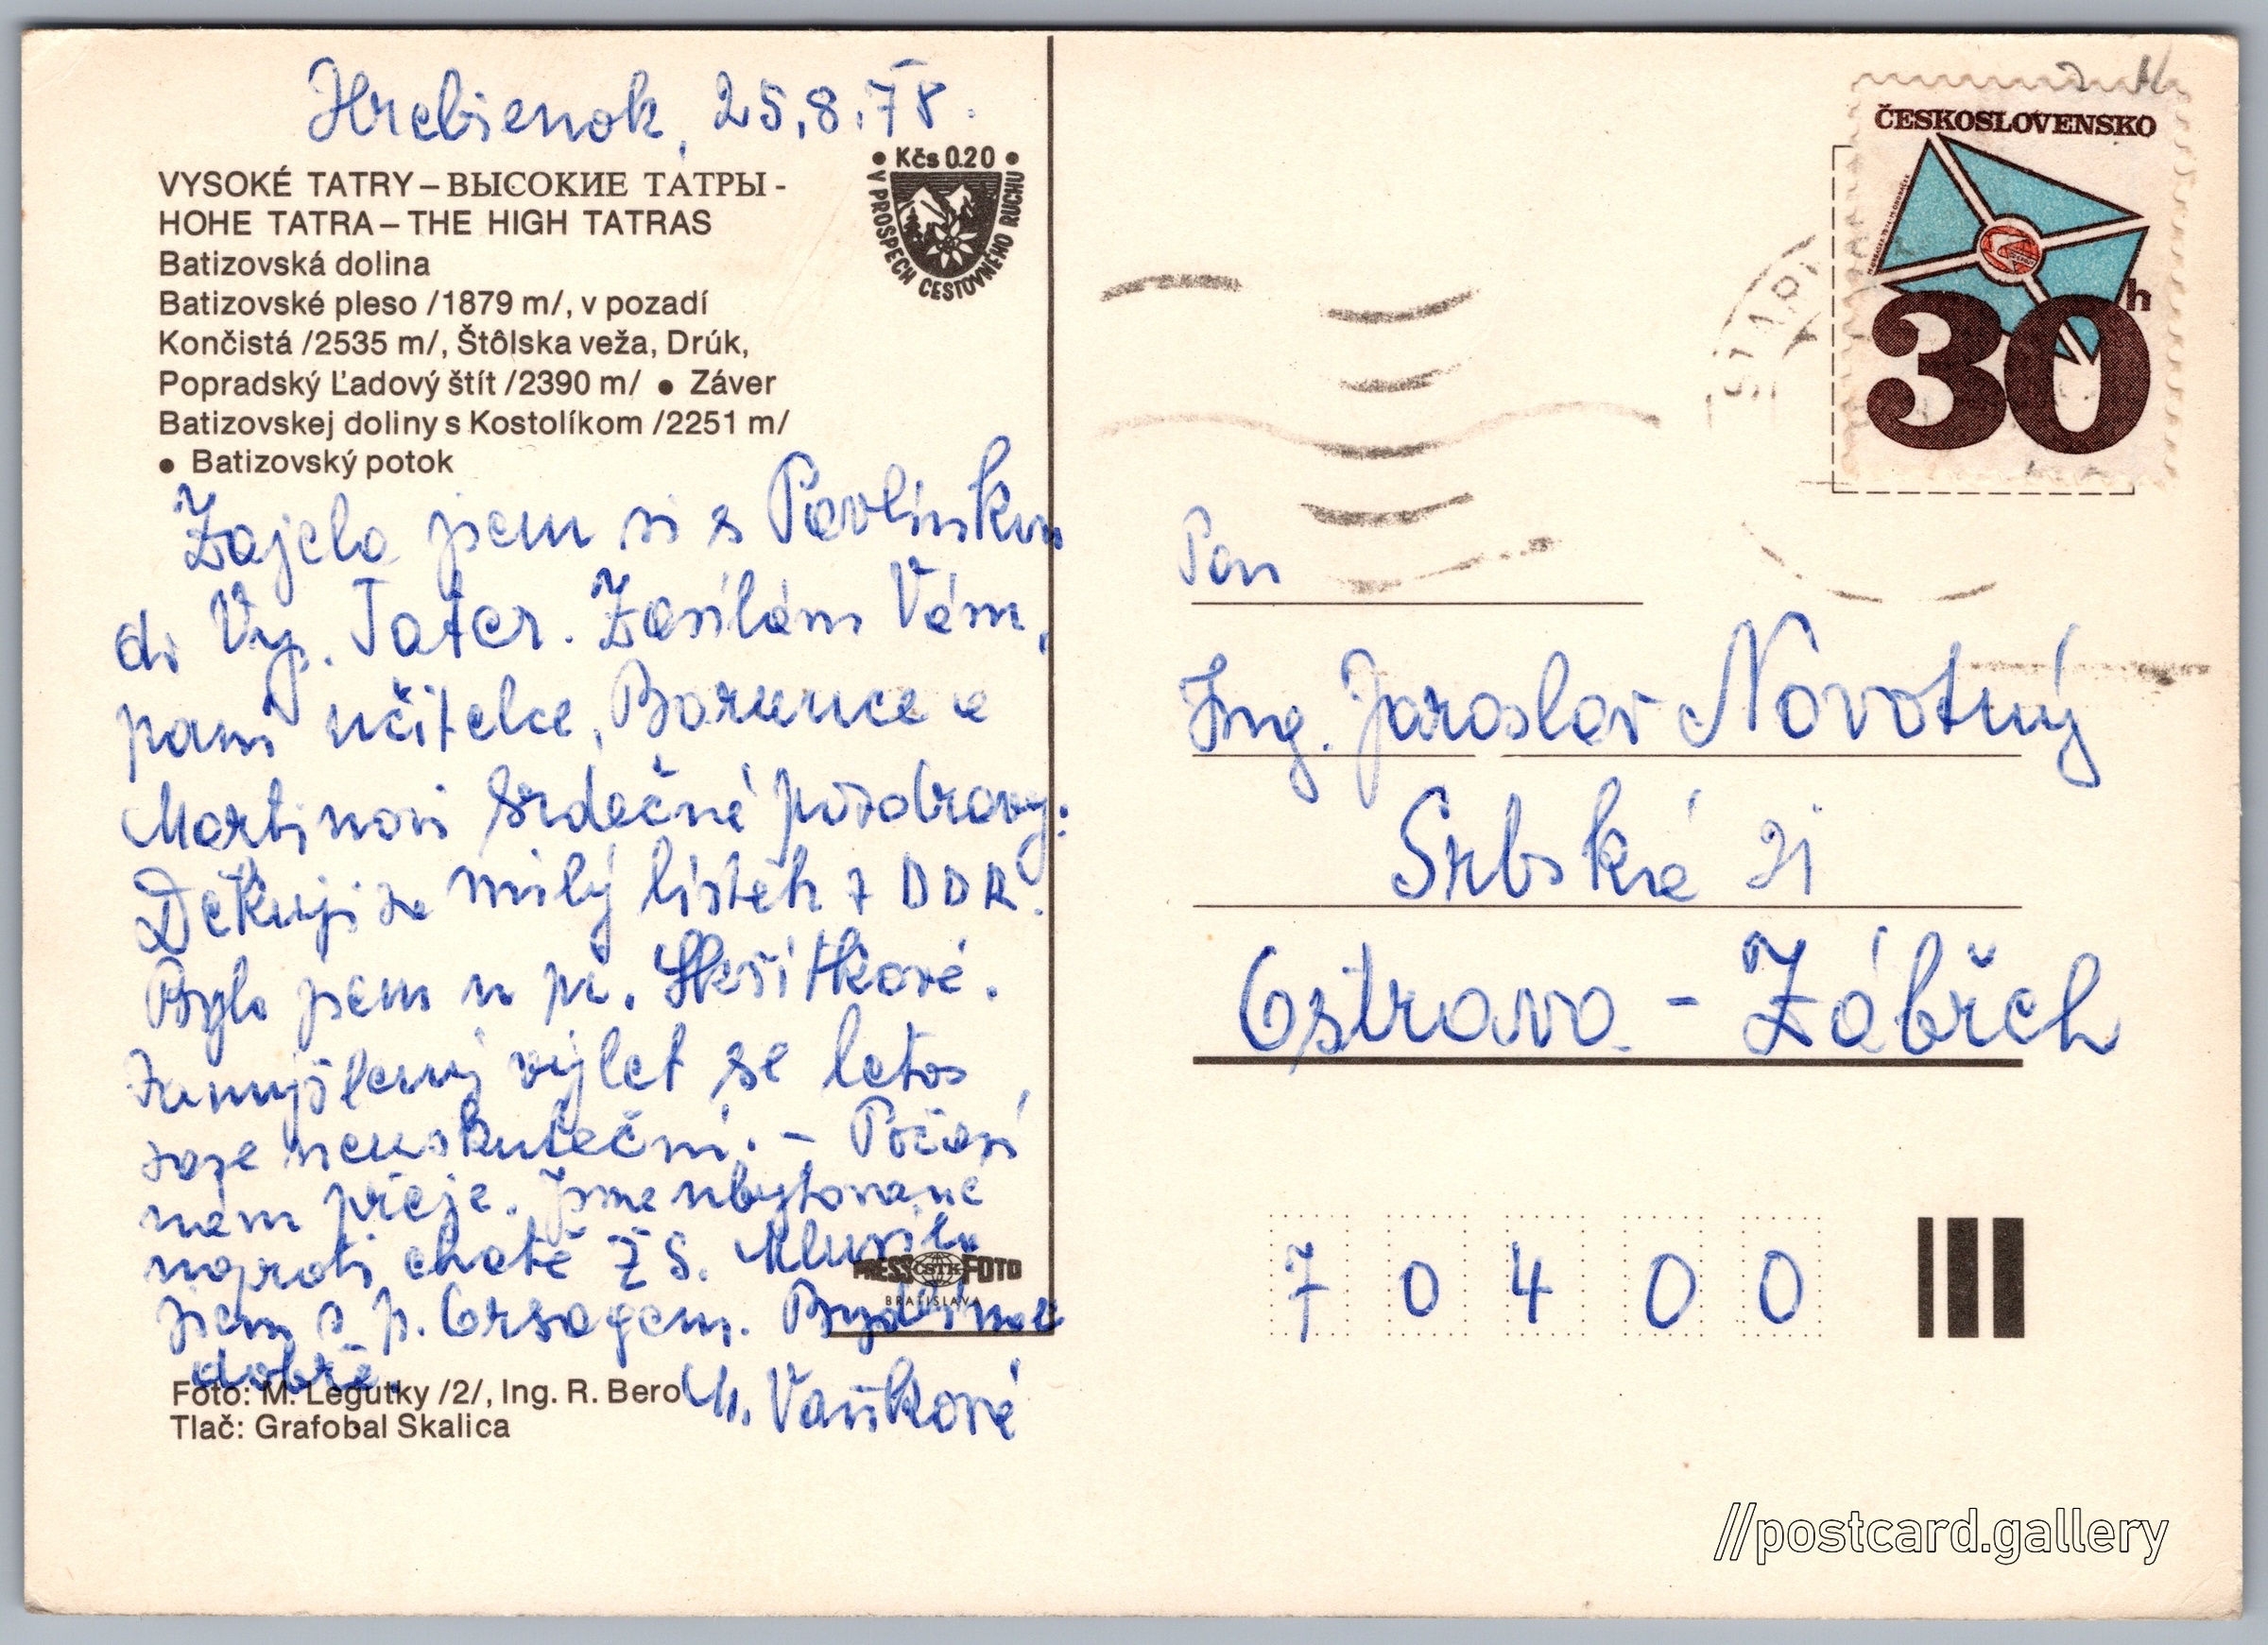 Hrebienok, 25.8.78.
• Kčs 0.20 •
V PROSPECH CESTOVNÉHO RUCHU
VYSOKÉ TATRY – ВЫСОКИЕ ТАТРЫ -
HOHE TATRA – THE HIGH TATRAS
Batizovská dolina
Batizovské pleso /1879 m/, v pozadí
Končistá /2535 m/, Štôlska veža, Drúk,
Popradský Ľadový štít /2390 m/ • Záver
Batizovskej doliny s Kostolíkom /2251 m/
• Batizovský potok
Zajela jsem si s Pavlínkou
do Vys. Tater. Zasílám Vám,
paní učitelce, Borunce a
Martinovi srdečné pozdravy.
Děkuji za milý lístek z DDR.
Byla jsem u p. Skřítkové.
Zamýšlený výlet se letos
zase neuskuteční. – Počasí
nám přeje. Jsme ubytované
naproti chatě ŽS. Mluvila
jsem s p. Orságem. Bydlíme
dobře.
M. Vaňková
PRESS ČSTK FOTO
BRATISLAVA
Foto: M. Legutky /2/, Ing. R. Bero
Tlač: Grafobal Skalica
ČESKOSLOVENSKO
30 h
STARÝ
Pan
Ing. Jaroslav Novotný
Srbská 21
Ostrava - Zábřeh
7 0 4 0 0
//postcard.gallery